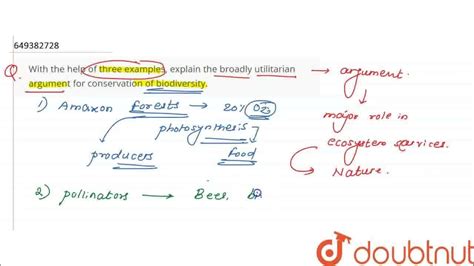 649382728
Q. With the help of three examples, explain the broadly utilitarian → argument.
argument for conservation of biodiversity.
major role in
ecosystem services.
Nature.
1) Amazon forests → 20% O2
photosynthesis
producers food
2) pollinators → Bees,
doubtnut